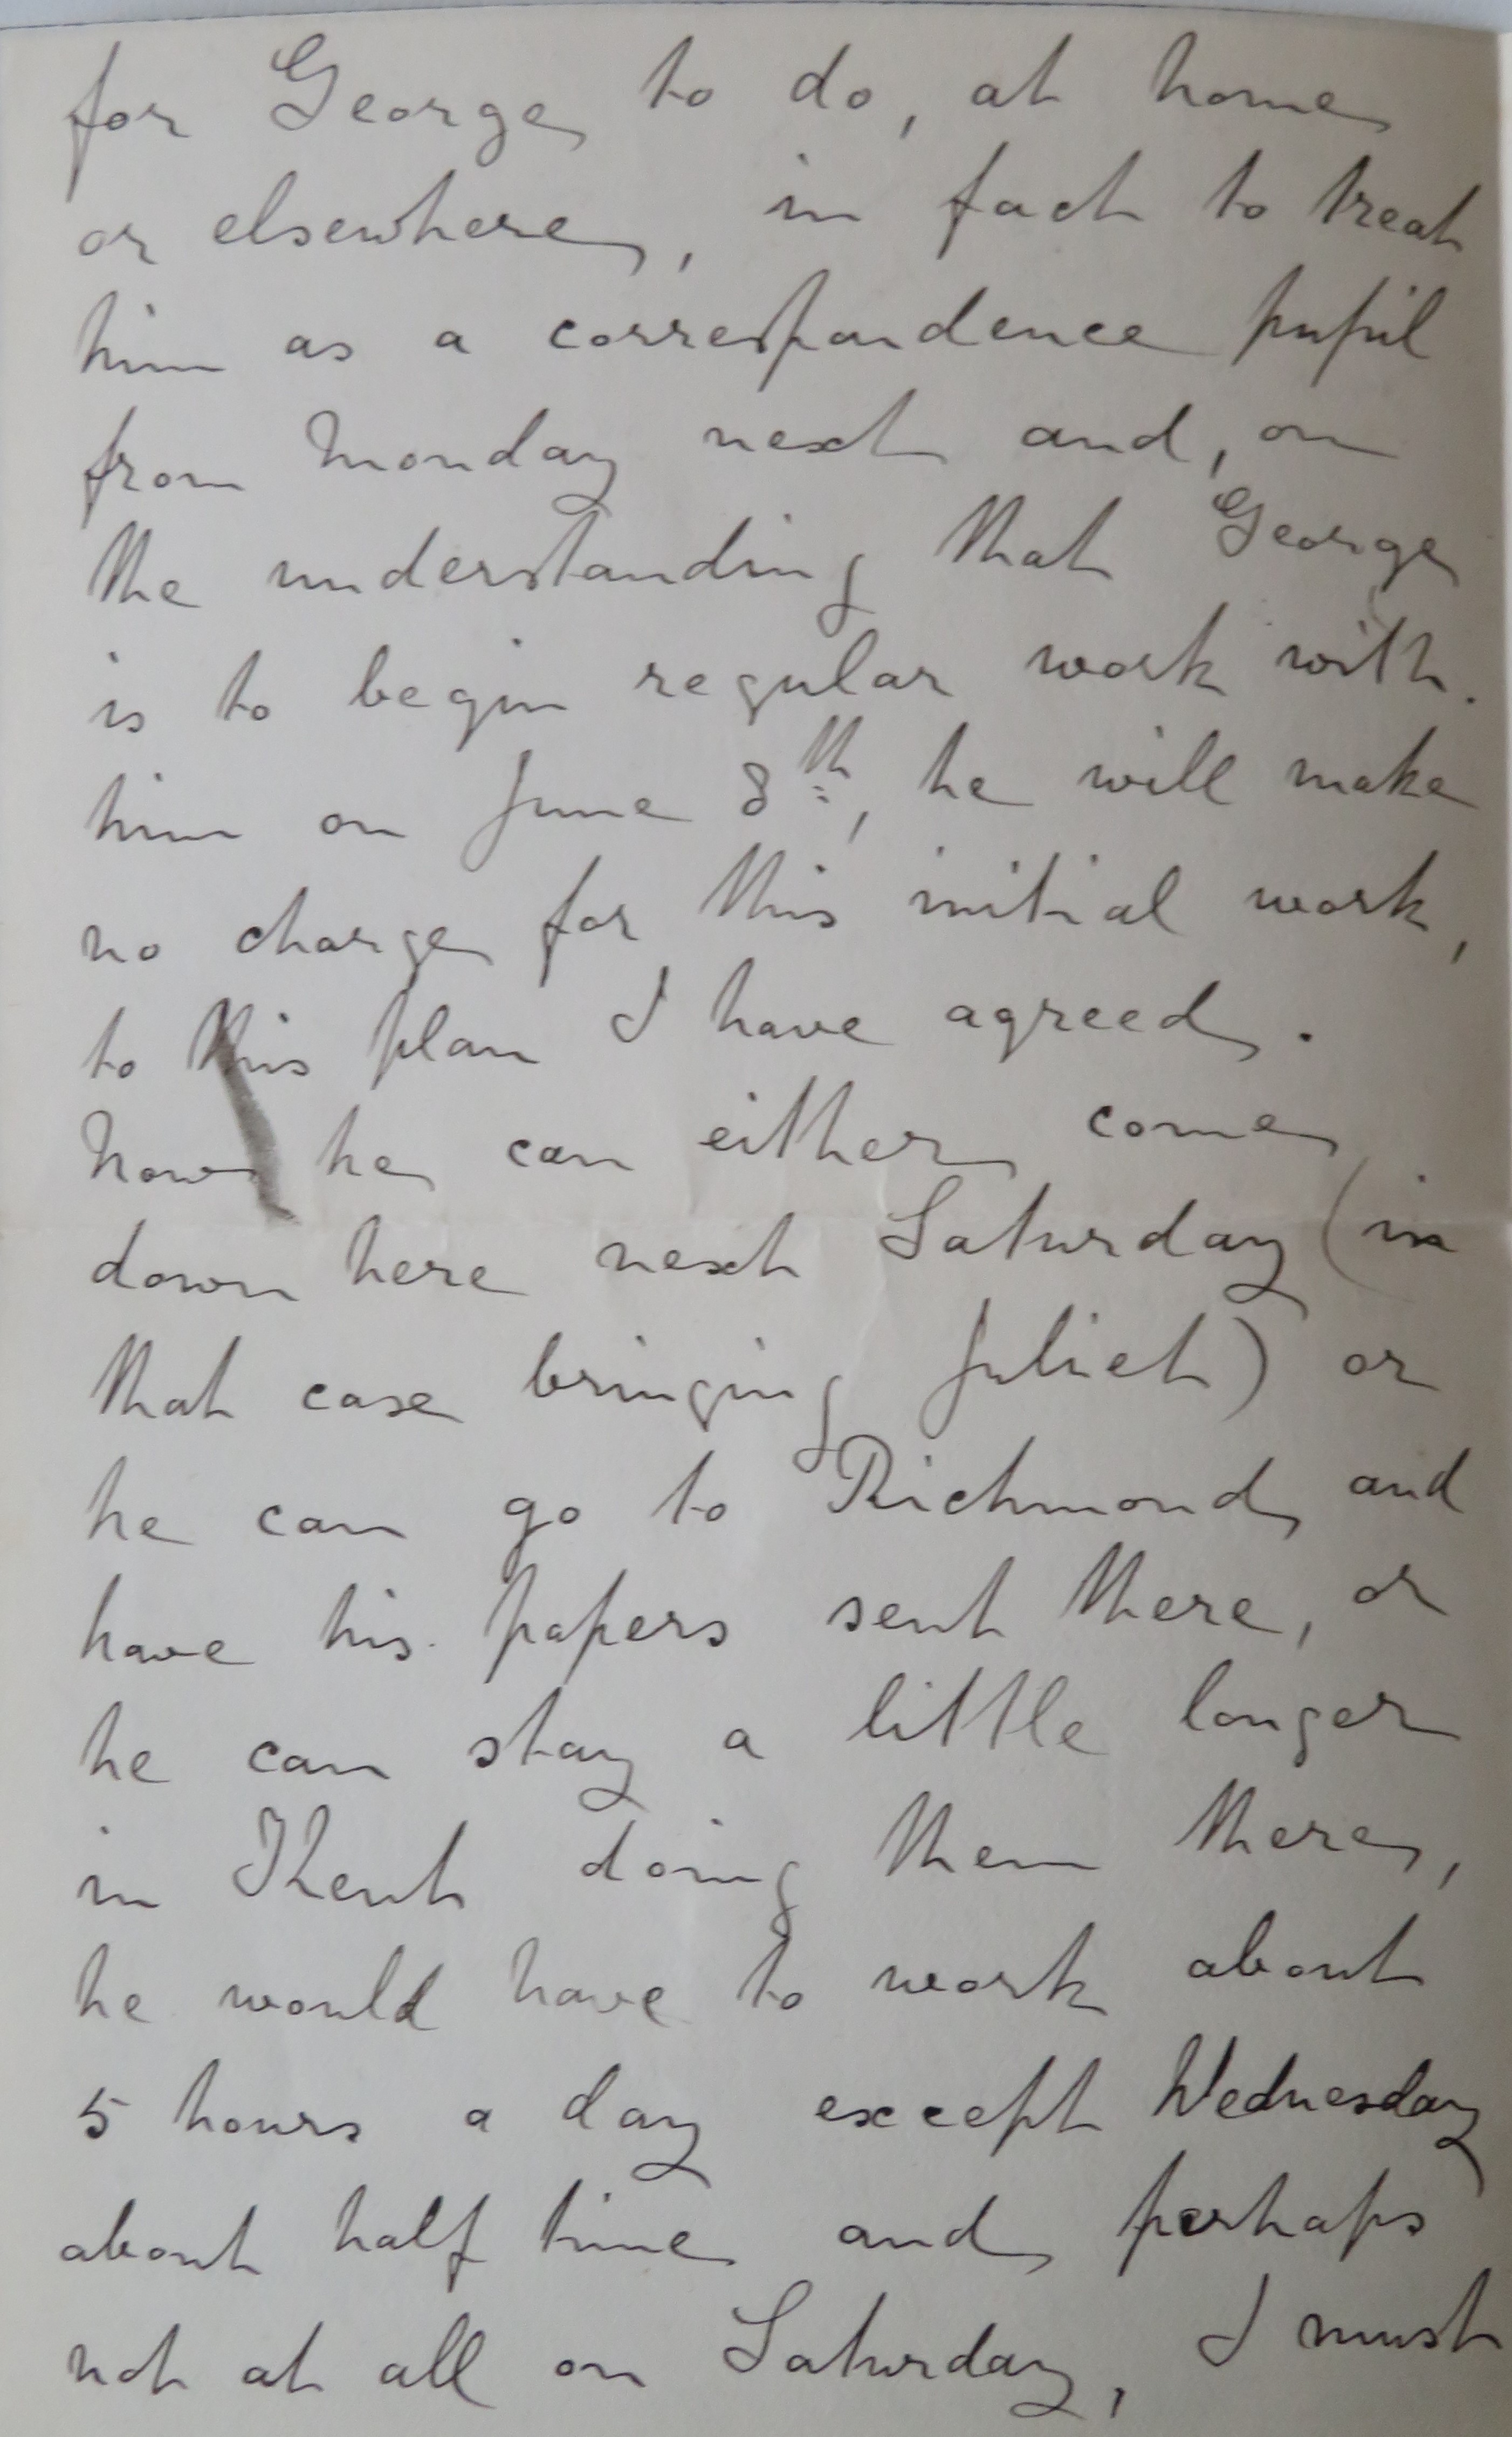 for George to do, at home
or elsewhere, in fact to treat
him as a correspondence pupil
from Monday next and, on
the understanding that George
is to begin regular work with
him on June 8th, he will make
no charge for this initial work,
to this plan I have agreed.
Now he can either come
down here next Saturday (in
that case bringing Juliet) or
he can go to Richmond and
have his papers sent there, or
he can stay a little longer
in Kent doing them there,
he would have to work about
5 hours a day except Wednesday
about half time and perhaps
not at all on Saturday, I must